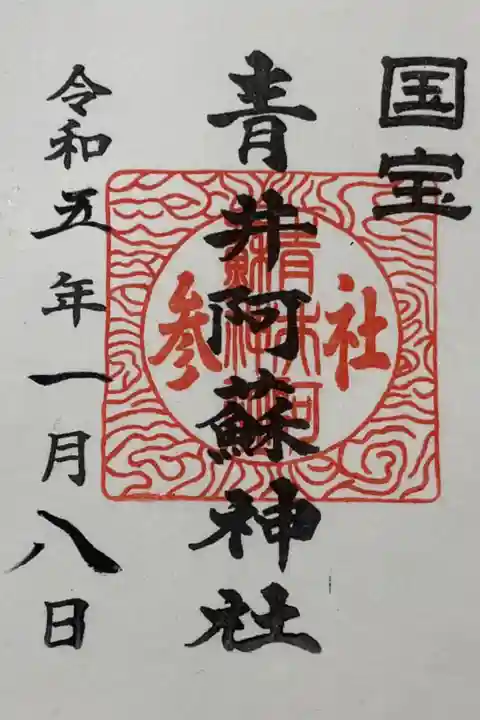 国宝
青井阿蘇神社
社参
青井阿
蘇神社
令和五年一月八日